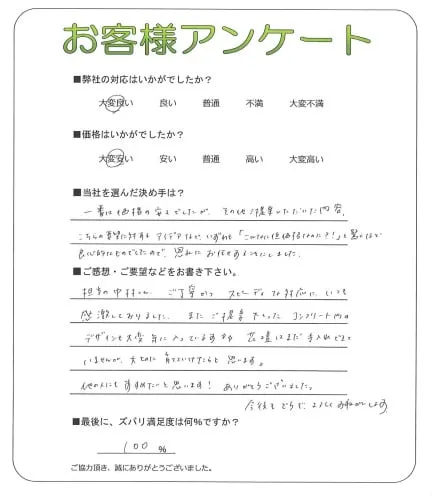 お客様アンケート
■弊社の対応はいかがでしたか？
大変良い 良い 普通 不満 大変不満
■価格はいかがでしたか？
大変安い 安い 普通 高い 大変高い
■当社を選んだ決め手は？
一番は価格の安さでしたが、その他ご提案いただいた内容、
こちらの要望に対する アイデアなど、いずれも「こんなに低価格なのに？！」と驚くほど
良心的なものでしたので、思わずお任せすることにしました。
■ご感想・ご要望などをお書き下さい。
担当の中村さん、ご丁寧かつ スピーディな対応に いつも
感激しておりました。 またご提案下さった コンクリート内の
デザインも大変気に入っています 花壇はまだ手入れできて
いませんが、大切に 育てていけたらと 思います。
他の人にもすすめたいと思います！ ありがとうございました。
今後とも どうぞ よろしくお願いします
■最後に、ズバリ満足度は何％ですか？
100 ％
ご協力頂き、誠にありがとうございました。